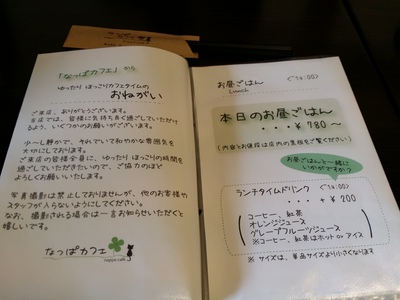 「なっぱカフェ」から
ゆったり ほっこりカフェタイムの
おねがい
ご来店、
ありがとうございます。
当店では、皆様に気持ち良く過ごしていただけ
るよう、いくつかのお願いがございます。
少〜し静かで、それでいて和やかな雰囲気を
大切にしております。
ご来店の皆様全員に、ゆったり ほっこりの時間を
過ごしていただきたいので、ご協力のほど
よろしくお願いいたします。
写真撮影は禁止しておりませんが、他のお客様や
スタッフが入らないようにしてください。
なお、撮影される場合は一言お知らせいただくと
嬉しいです。
なっぱカフェ
nappa cafe
お昼ごはん (〜14:00)
Lunch
本日のお昼ごはん
・・・ ¥780〜
(内容とお値段は店内の黒板をご覧ください)
お昼ごはんと一緒に
いかがですか?
ランチタイムドリンク (〜14:00)
・・・ + ¥200
コーヒー、紅茶
オレンジジュース
グレープフルーツジュース
※コーヒー、紅茶はホット or アイス
※ サイズは、単品サイズより小さくなります